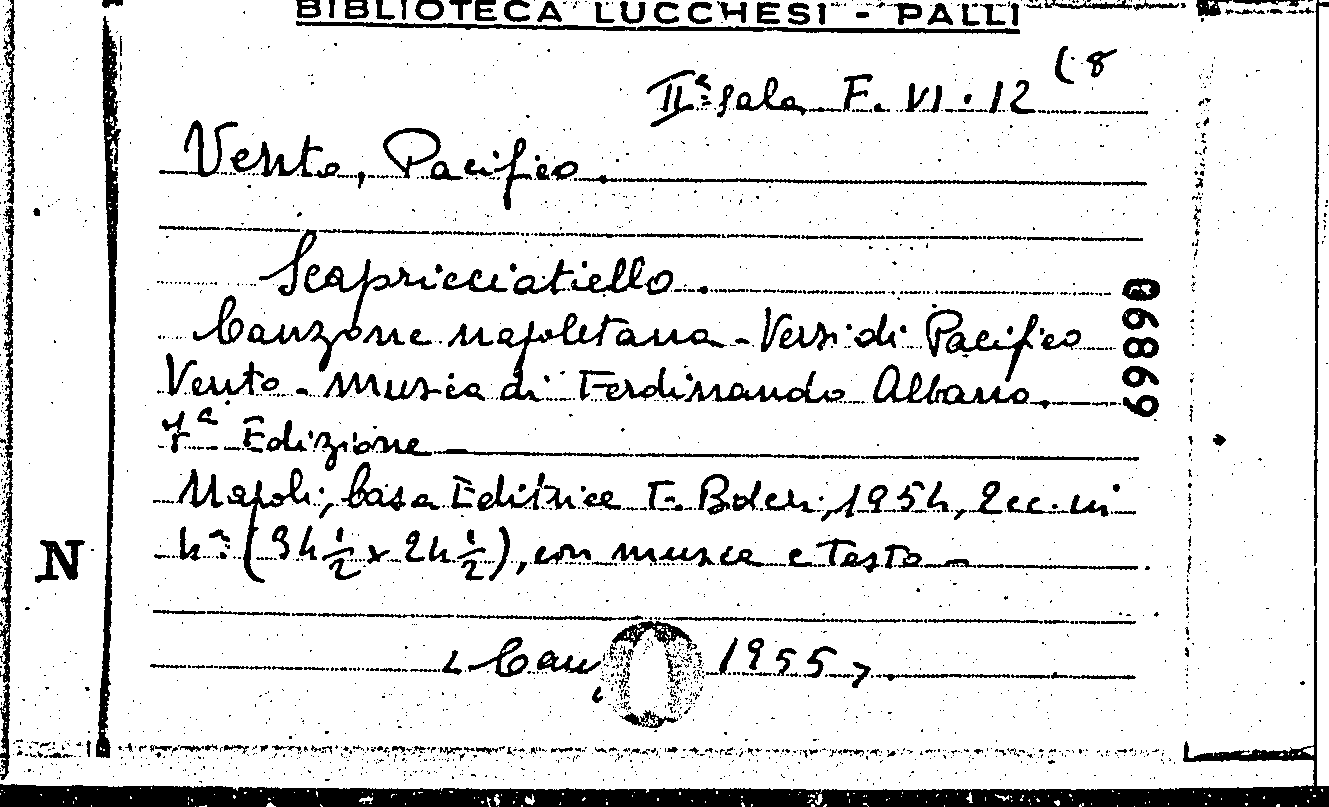 BIBLIOTECA LUCCHESI - PALLI
IIª sala. F. VI. 12 (8
Vento, Pacifico.
Scapricciatiello.
Canzone napoletana - Versi di Pacifico
Vento - musica di Ferdinando Albano.
Edizione -
Napoli, Casa Editrice F. Bideri, 1954, 2 cc. in
4º (34 1/2 x 24 1/2), con musica e testo -
1955
69890
N